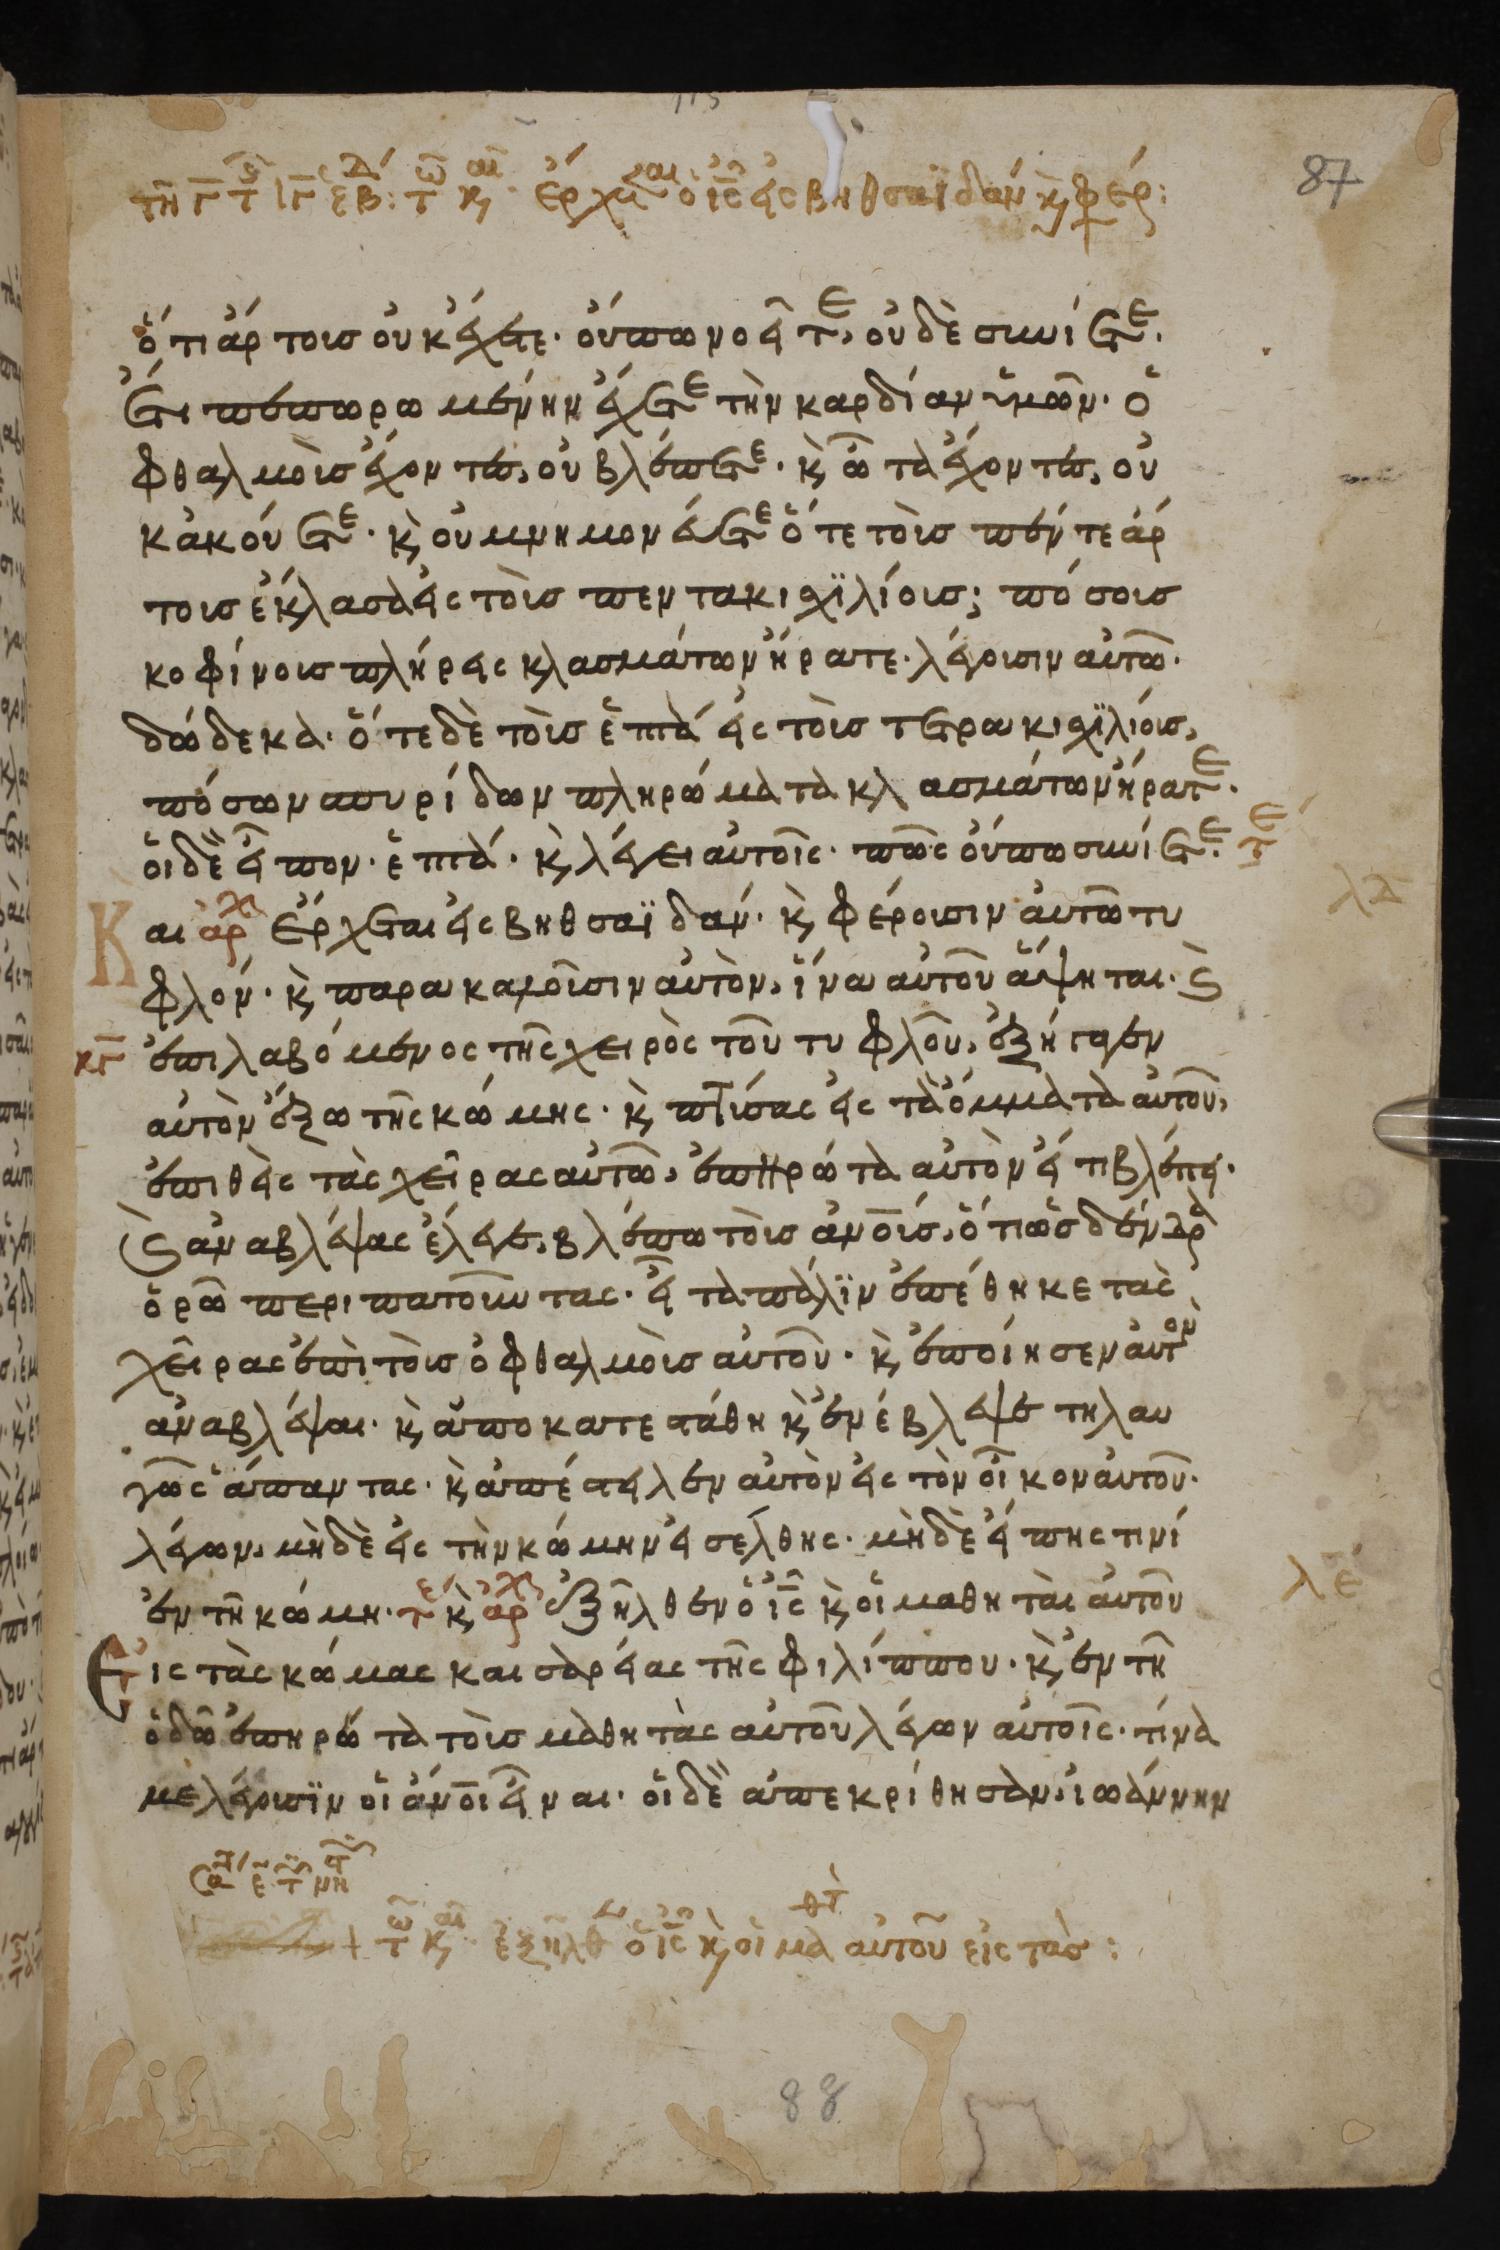 87
τῆ γ τ ιγ ἑβ: τ κ, ἔρχεται ὁ ις εἰς βηθσαϊδάν κ, φέρ:
ὅτι ἄρτους οὐκ ἔχετε· οὔπω νοεῖτε, οὐδὲ συνίετε·
ἔτι πεπωρωμένην ἔχετε τὴν καρδίαν ὑμῶν· ὀ
φθαλμοὺς ἔχοντες, οὐ βλέπετε· κ, ὦτα ἔχοντες, οὐ
κ ἀκούετε· κ, οὐ μνημονεύετε ὅτε τοὺς πέντε ἄρ
τους ἔκλασα εἰς τοὺς πεντακισχϊλίους; πόσους
κοφίνους πλήρεις κλασμάτων ἤρατε· λέγουσιν αὐτῶ·
δώδεκα· ὅτε δὲ τοὺς ἑπτὰ εἰς τοὺς τετρακισχϊλίους,
πόσων σπυρίδων πληρώματα κλασμάτων ἤρατε·
οἱ δὲ εἶπον· ἑπτά· κ, λέγει αὐτοῖς· πῶς οὔπω συνίετε· τε
λδ
Και αρχ ἔρχεται εἰς βηθσαϊδάν· κ, φέρουσιν αὐτῶ τυ
φλόν· κ, παρακαλοῦσιν αὐτὸν, ἵνα αὐτοῦ ἅψηται· κ,
κγ ἐπιλαβόμενος τῆς χειρὸς τοῦ τυφλοῦ, ἐξήγαγεν
αὐτὸν ἔξω τῆς κώμης· κ, πτύσας εἰς τὰ ὄμματα αὐτοῦ,
ἐπιθεὶς τὰς χεῖρας αὐτῶ, ἐπηρώτα αὐτὸν εἴ τι βλέπει·
κ, ἀναβλέψας ἔλεγε, βλέπω τοὺς ἀνοὺς, ὅτι ὡς δένδρα
ὁρῶ περιπατοῦντας· εἶτα πάλϊν ἐπέθηκε τὰς
χεῖρας ἐπὶ τοὺς ὀφθαλμοὺς αὐτοῦ· κ, ἐποίησεν αὐτὸν
ἀναβλέψαι· κ, ἀποκατεστάθη κ, ἐνέβλεψε τηλαυ
γῶς ἅπαντας· κ, ἀπέστειλεν αὐτὸν εἰς τὸν οἶκον αὐτοῦ·
λέγων, μὴδὲ εἰς τὴν κώμην εἰσέλθης· μὴδὲ εἴπης τινί
ἐν τῆ κώμη· τε κ, αρχ ἐξῆλθεν ὁ ις κ, οἱ μαθηταὶ αὐτοῦ
λε
Εἰς τὰς κώμας καισαρείας τῆς φιλίππου· κ, ἐν τῆ
ὁδῶ ἐπηρώτα τοὺς μαθητὰς αὐτοῦ λέγων αὐτοῖς· τίνα
με λέγουσϊν οἱ ἀνοι εἶναι· οἱ δὲ ἀπεκρίθησαν, ἰωάννην
τ κ, ἐξῆλθ ὁ ις κ, οἱ μαθτ αὐτοῦ εἰς τὰσ:
88